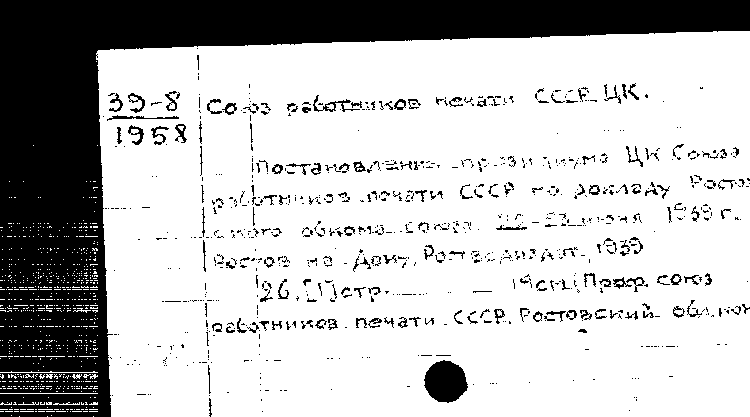 39-8
1958
Союз работников печати СССР. ЦК.
Постановление президиума ЦК Союза
работников печати СССР по докладу Росто
ского обкома союза 22-23 июня 1939 г.
Ростов на Дону, 1939
26, [1] стр. 19 см. (Проф. союз
работников печати СССР. Ростовский обл. ком